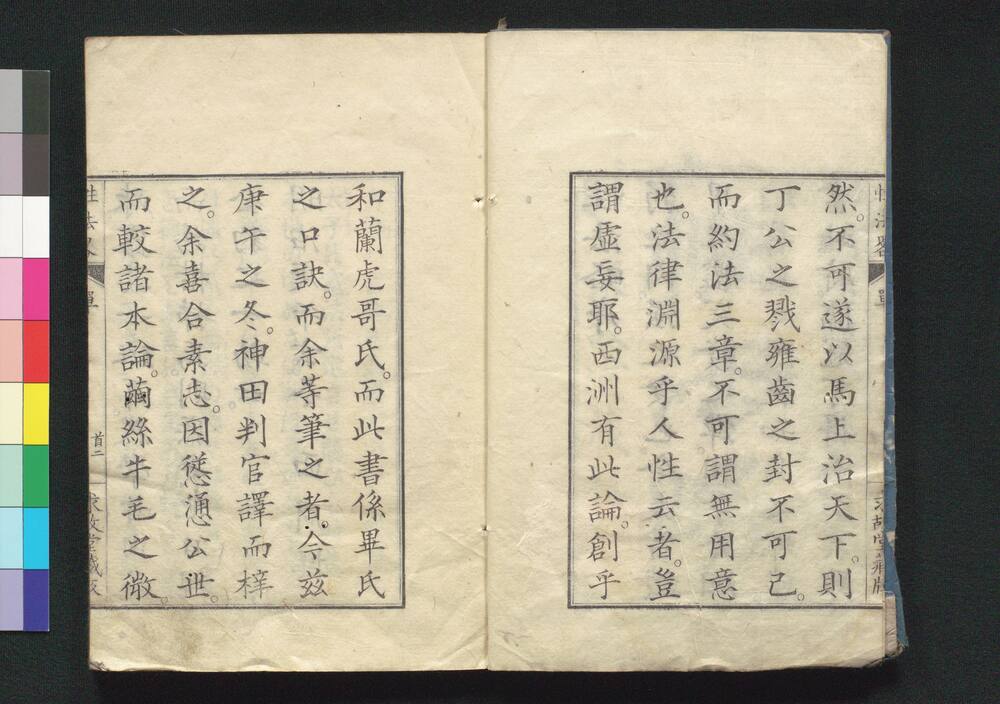 然。不可遂以馬上治天下。則
丁公之戮雍齒之封不可已。
而約法三章。不可謂無用意
也。法律淵源乎人性云者。豈
謂虛妄耶。西洲有此論。創乎
和蘭虎哥氏。而此書係畢氏
之口訣。而余等筆之者。今茲
庚午之冬。神田判官譯而梓
之。余喜合素志。因慫慂公世。
而較諸本論。繭絲牛毛之微。
性法畧
單
首二
求故堂藏版